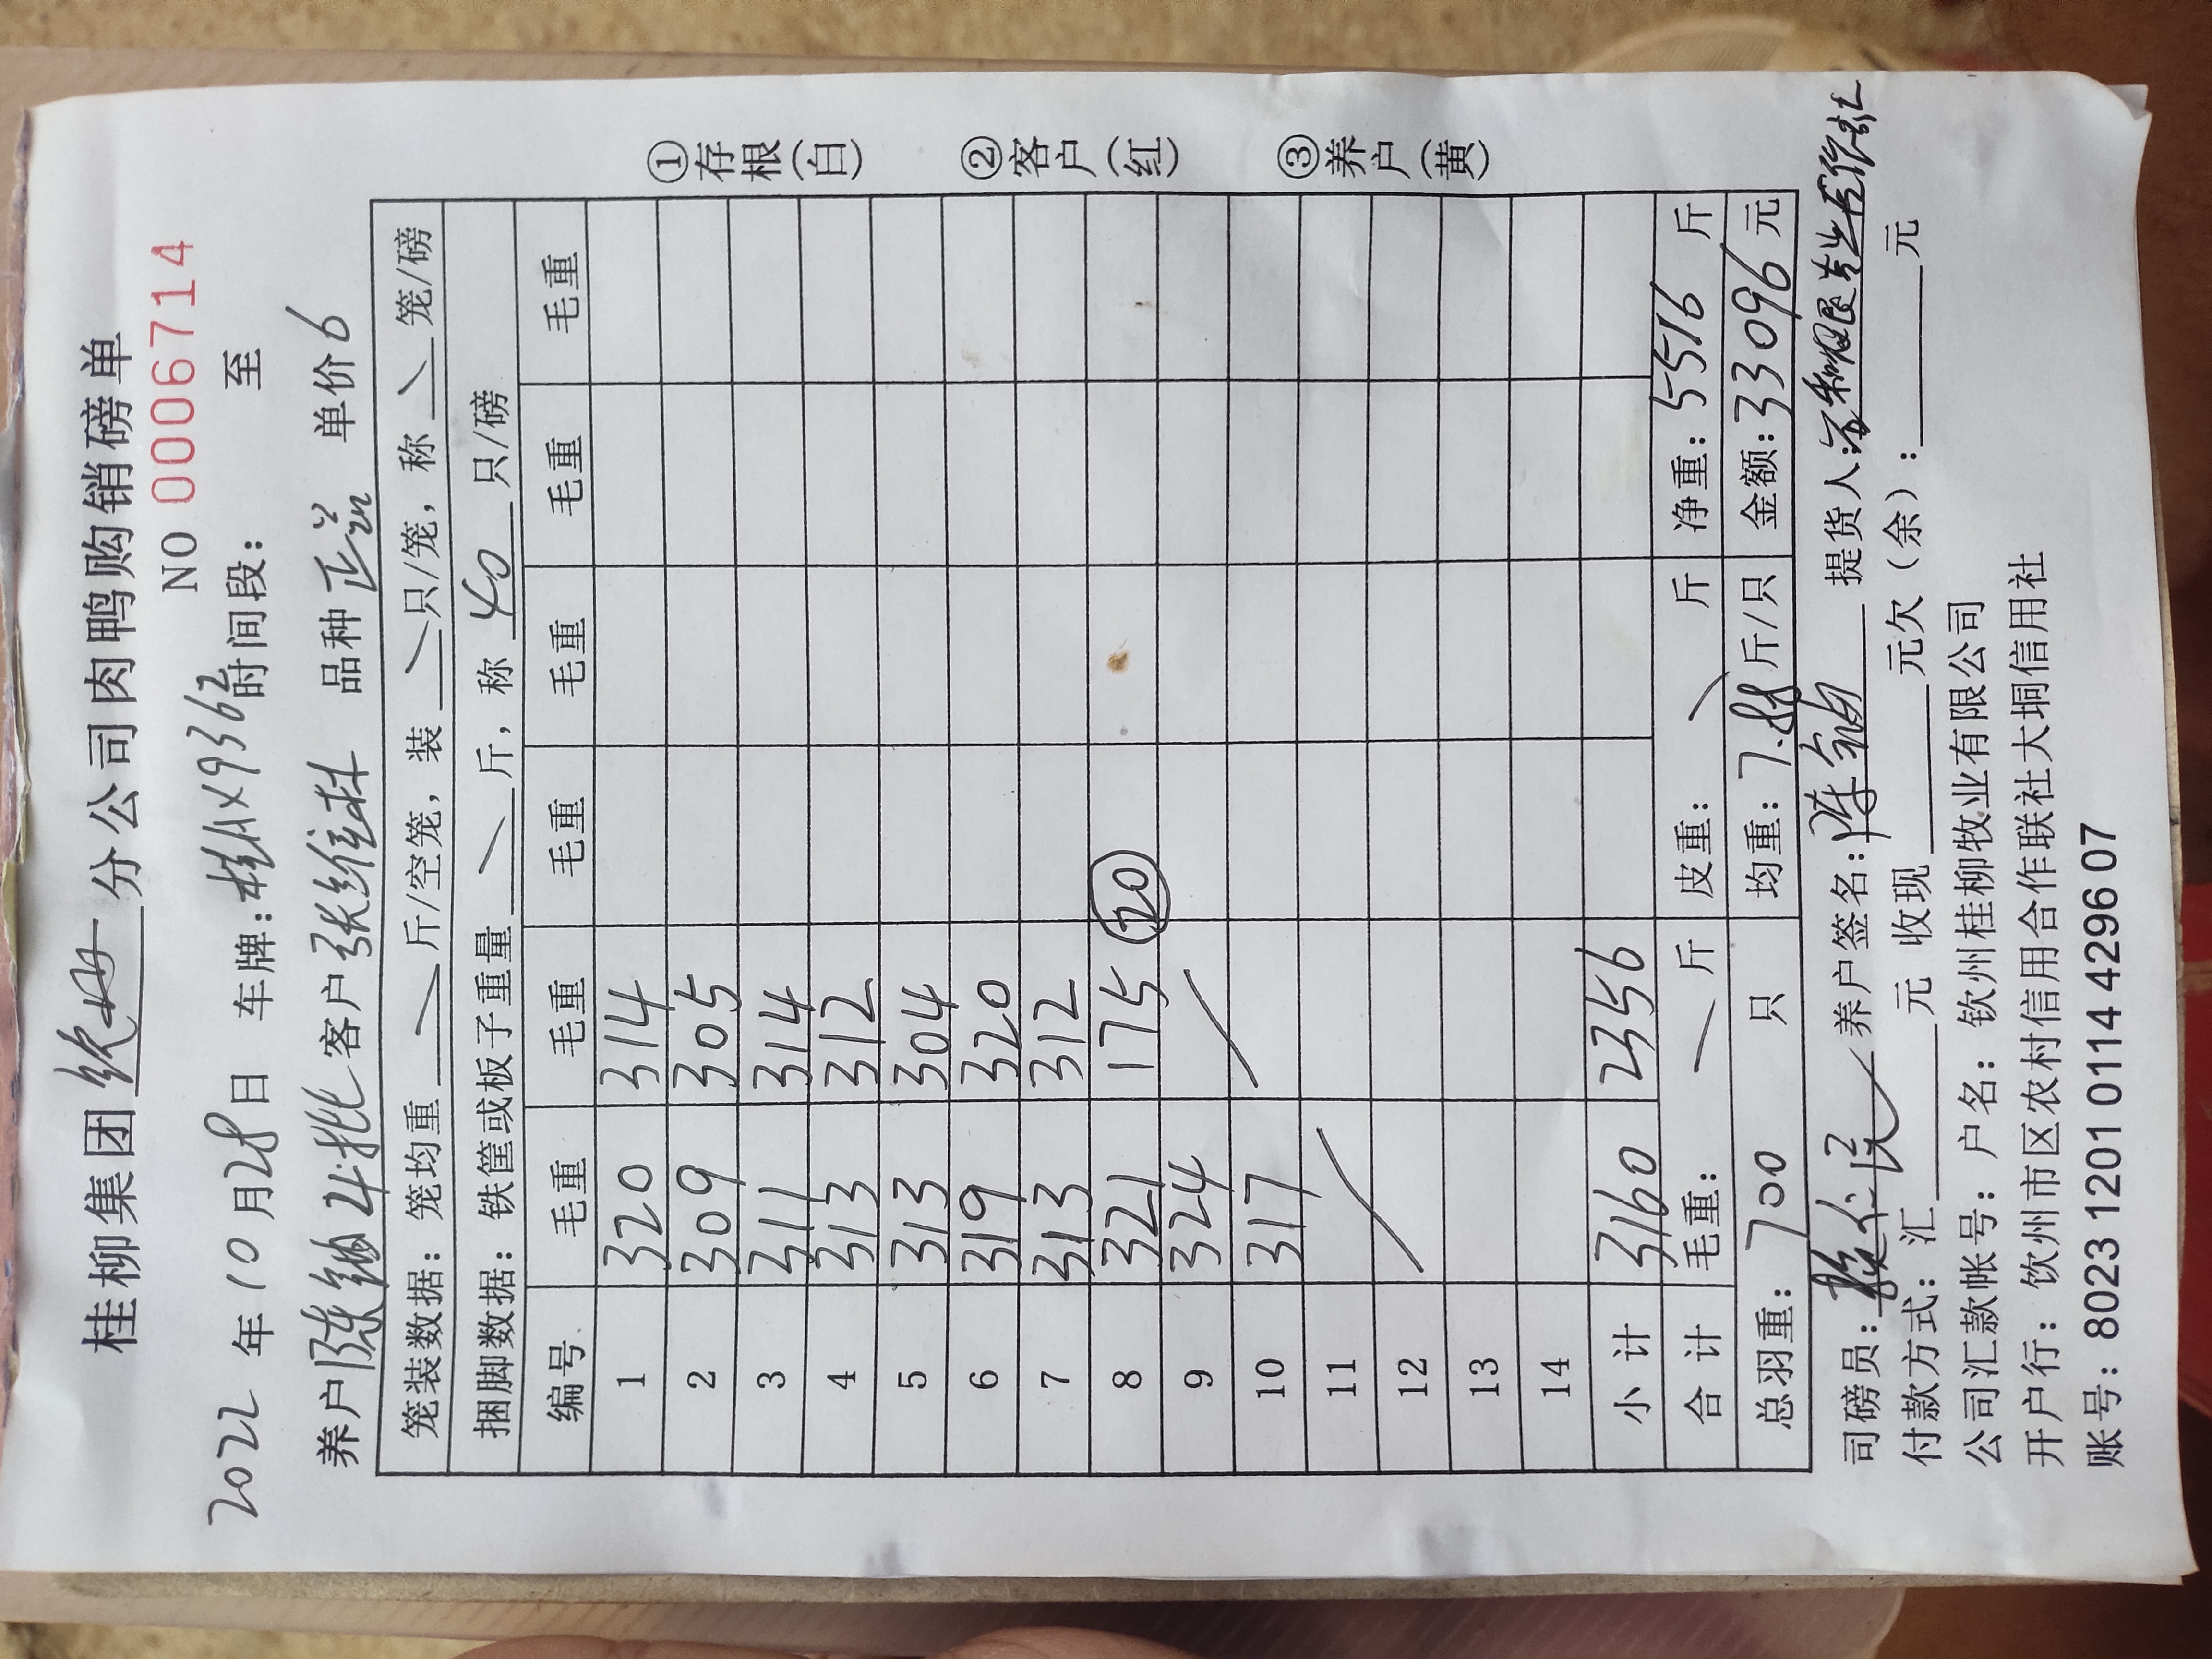 桂柳集团 分公司肉鸭购销磅单
NO 0006714
2022 年 10 月 28 日 车牌：桂AX9362 时间段： 至
养户 陈 4批 客户 张维林 品种 正品 单价 6
笼装数据：笼均重 斤/空笼，装 只/笼，称 笼/磅
捆脚数据：铁筐或板子重量 斤，称 40 只/磅
编号 毛重 毛重 毛重 毛重 毛重 毛重
1 320 314
2 309 305
3 311 314
4 313 312
5 313 304
6 319 320
7 313 312
8 321 175 20
9 324
10 317
11
12
13
14
小计 3160 2356
合计 毛重： 斤 皮重： 斤 净重：5516 斤
总羽重：700 只 均重：7.88 斤/只 金额：33096 元
①存根(白)
②客户(红)
③养户(黄)
司磅员： 养户签名：陈 提货人：
付款方式：汇 元 收现 元欠（余）： 元
公司汇款帐号：户名：钦州桂柳牧业有限公司
开户行：钦州市区农村信用合作联社大垌信用社
账号：8023 1201 0114 4296 07